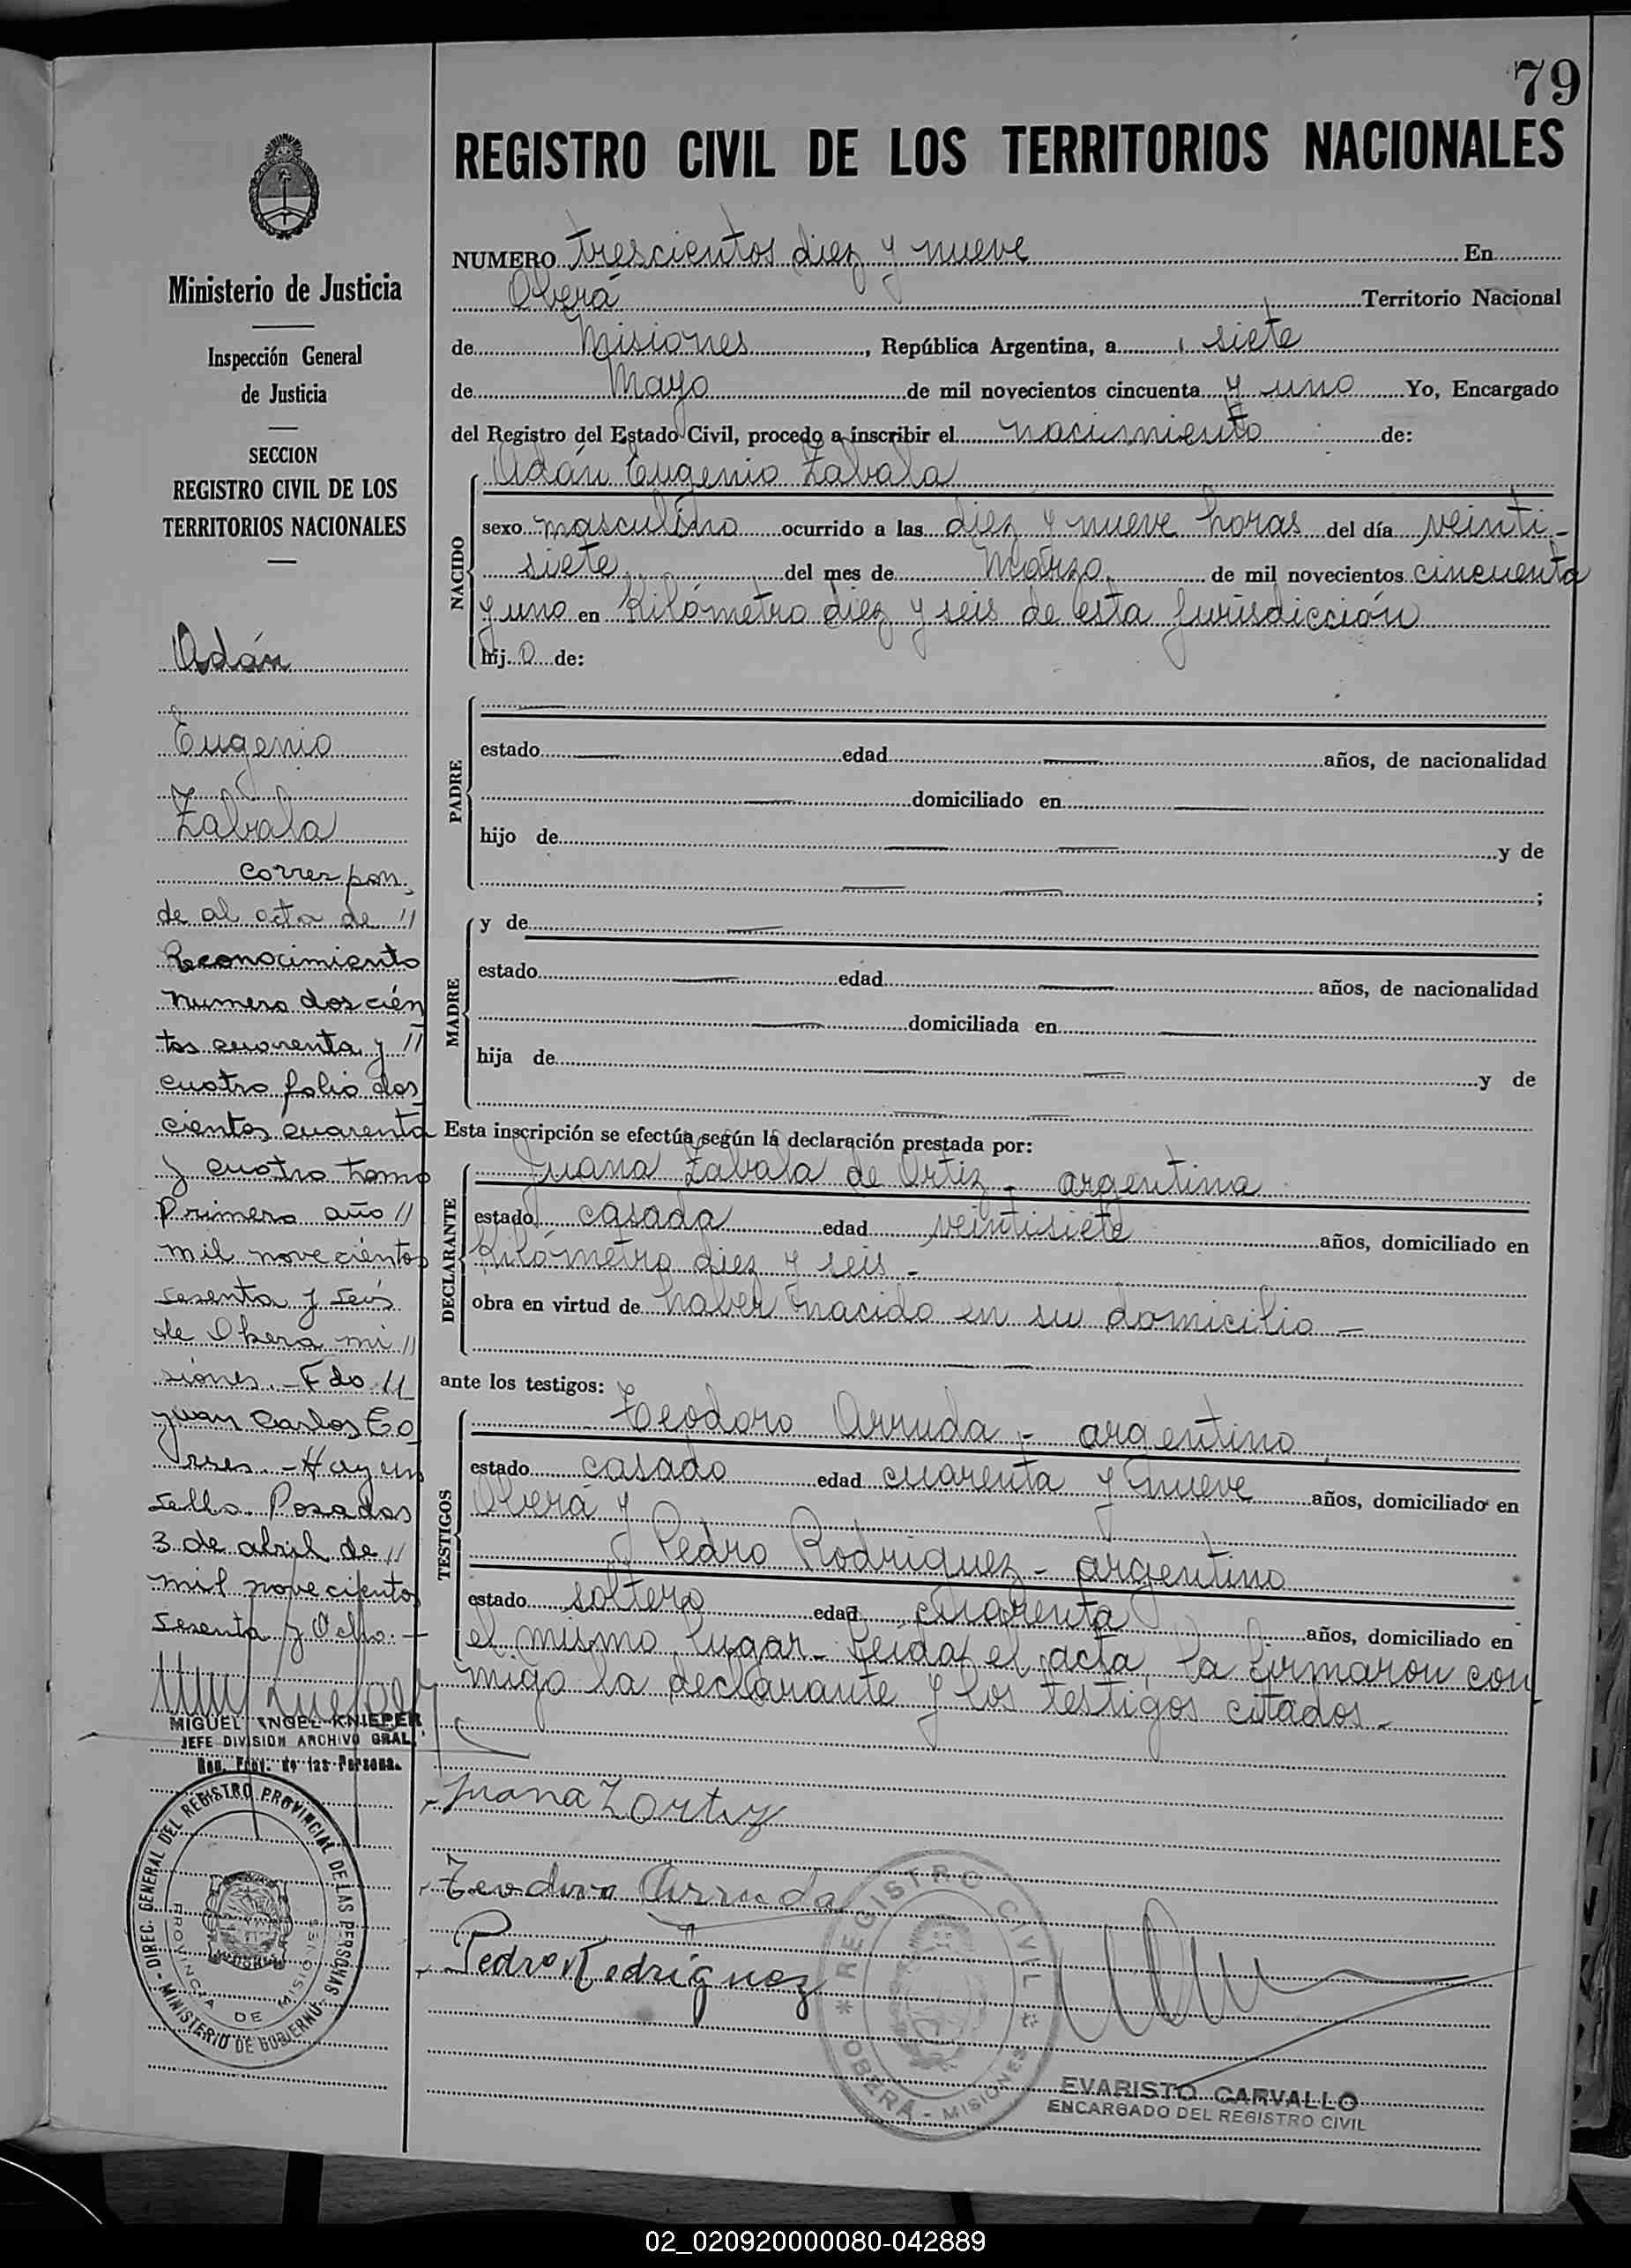 79
REGISTRO CIVIL DE LOS TERRITORIOS NACIONALES
NUMERO trescientos diez y nueve En
Oberá Territorio Nacional
de Misiones, República Argentina, a siete
de Mayo de mil novecientos cincuenta y uno Yo, Encargado
del Registro del Estado Civil, procedo a inscribir el nacimiento de:
NACIDO
Adán Eugenio Zabala
sexo masculino ocurrido a las diez y nueve horas del día veinti-
siete del mes de Marzo de mil novecientos cincuenta
y uno en Kilómetro diez y seis de esta jurisdicción
hij o de:
PADRE
estado edad años, de nacionalidad
domiciliado en
hijo de y de
;
MADRE
y de
estado edad años, de nacionalidad
domiciliada en
hija de y de
Esta inscripción se efectúa según la declaración prestada por:
DECLARANTE
Juana Zabala de Ortiz - argentina
estado casada edad veintisiete años, domiciliado en
Kilómetro diez y seis -
obra en virtud de haber nacido en su domicilio -
ante los testigos:
TESTIGOS
Teodoro Arruda - argentino
estado casado edad cuarenta y nueve años, domiciliado en
Oberá y
Pedro Rodriguez - argentino
estado soltero edad cuarenta años, domiciliado en
el mismo lugar - Leída el acta la firmaron con
migo la declarante y los testigos citados -
Juana Z Ortiz
Teodoro Arruda
Pedro Rodriguez
* REGISTRO CIVIL *
OBERÁ - MISIONES
EVARISTO CARVALLO
ENCARGADO DEL REGISTRO CIVIL
Ministerio de Justicia
Inspección General
de Justicia
SECCION
REGISTRO CIVIL DE LOS
TERRITORIOS NACIONALES
Adán
Eugenio
Zabala
Correspon-
de al acta de //
Reconocimiento
numero doscién
tos cuarenta y //
cuatro folio dos
cientos cuarenta
y cuatro tomo
Primero año //
mil novecientos
sesenta y seis
de Obera mi //
siones. - Fdo //
Juan Carlos
- Hay un
sello. Posadas
3 de abril de //
mil novecientos
sesenta y Ocho. -
MIGUEL ANGEL KNIEPER
JEFE DIVISION ARCHIVO GRAL.
Reg. Prov. de las Persona.
DIREC. GENERAL DEL REGISTRO PROVINCIAL DE LAS PERSONAS
- MINISTERIO DE GOBIERNO -
PROVINCIA DE MISIONES
02_020920000080-042889